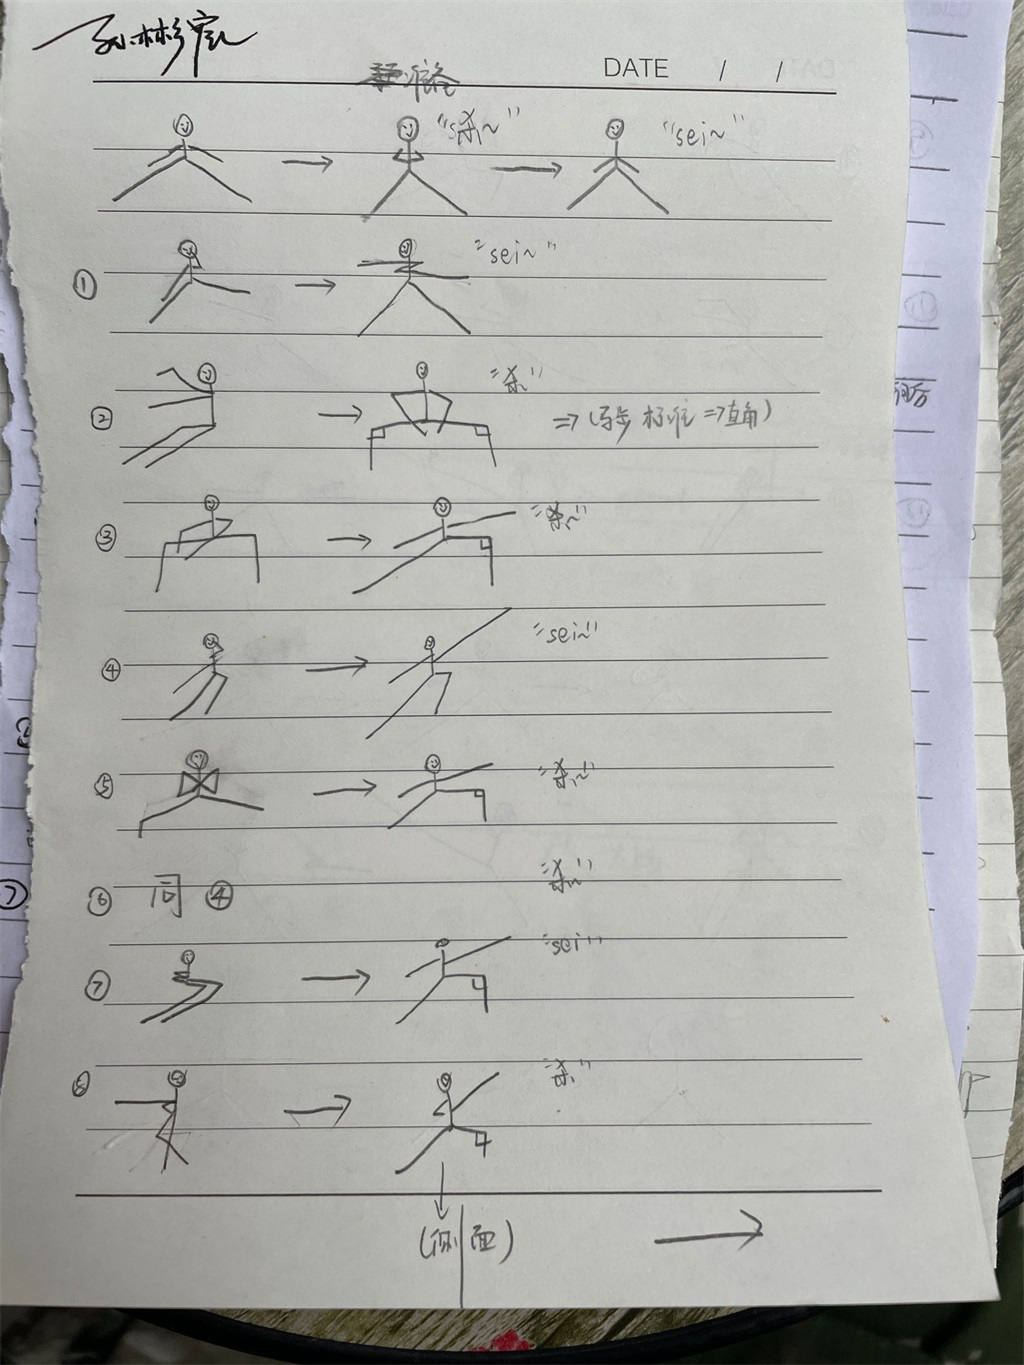 孙彬宸
准备 DATE / /
"杀~" "sei~"
① "sei~"
② "杀"
=> (马步 标准 => 直角)
③ "杀~"
④ "sei~"
⑤ "杀~"
⑥ 同 ④ "杀~"
⑦ "sei"
⑧ "杀"
(侧面)
⑦